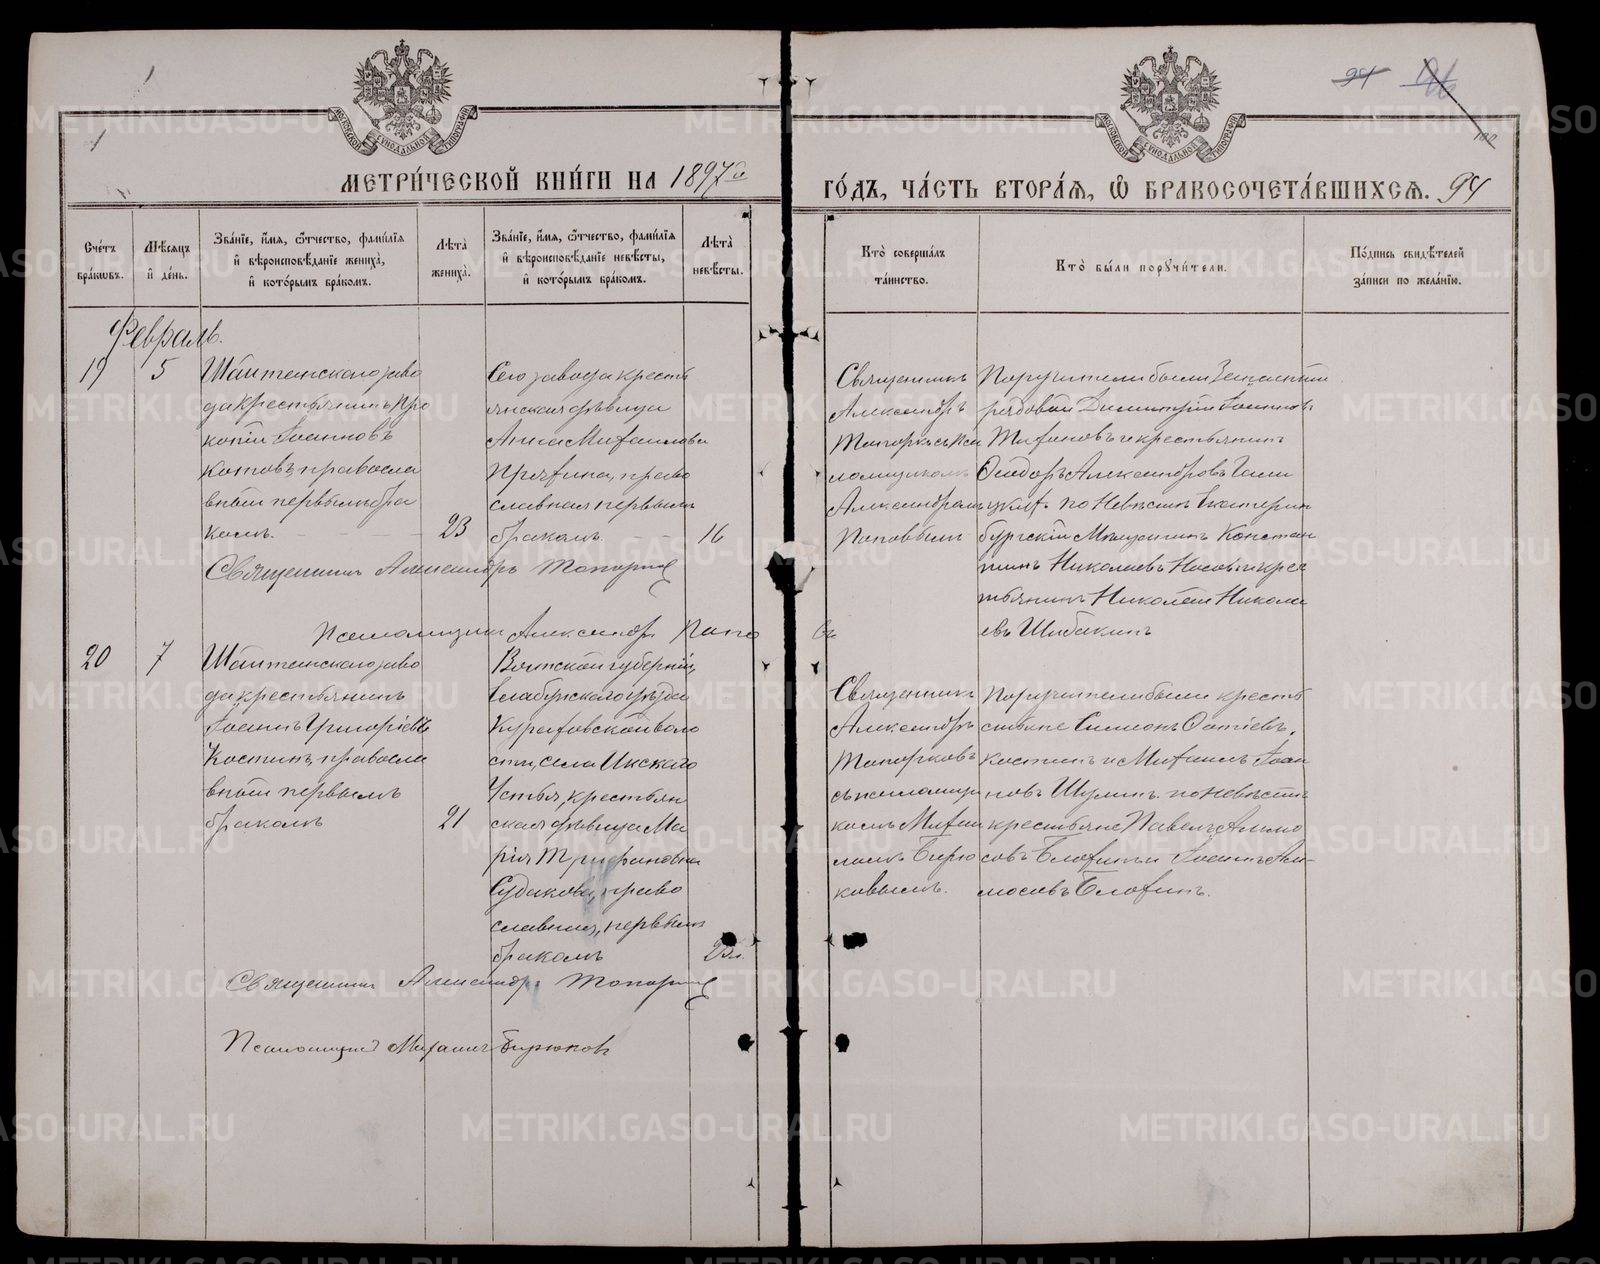 1
94 96
102
1
МОСКОВСКОЙ СѴНОДАЛЬНОЙ ТИПОГРАФІИ
МОСКОВСКОЙ СѴНОДАЛЬНОЙ ТИПОГРАФІИ
МЕТРИ́ЧЕСКОЙ КНИ́ГИ НА 1897й
ГО́ДЪ, ЧА́СТЬ ВТОРА́Я, Ѿ БРАКОСОЧЕТА́ВШИХСЯ. 94
Сче́тъ бра́ковъ.
Мѣ́сяцъ и де́нь.
Зва́нїе, и́мя, ѻ҆́тчество, фами́лїя и вѣроисповѣ́данїе жениха̀, и кото́рымъ бра́комъ.
Лѣ́та жениха̀.
Зва́нїе, и́мя, ѻ҆́тчество, фами́лїя и вѣроисповѣ́данїе невѣ́сты, и кото́рымъ бра́комъ.
Лѣ́та невѣ́сты.
Кто̀ соверша́лъ та́инство.
Кто̀ бы́ли порꙋчи́тели.
По́дпись свидѣ́телей за́писи по жела́нїю.
Февраль.
19 5
Шайтанскаго заво
да крестьянинъ Про
копій Іоанновъ
Котовъ, правосла
вный первымъ бра
комъ. 23
Сего завода кресть
янская дѣвица
Анна Михаилова
православная первымъ
бракомъ. 16
Священникъ
Александръ
Топорковъ съ пса
ломщикомъ
Александромъ
Поповымъ
Поручители были Запасный
рядовой Димитрій Іоанновъ
Тифановъ и крестьянинъ
Сидоръ Александровъ
по Невѣстѣ Екатерин
бургскій Мѣщанинъ Констан
тинъ Николаевъ Носовъ и крес
тьянинъ Николай Никола
евъ Шибакинъ
Священникъ Александръ Топорковъ
Псаломщикъ Александръ Поповъ
20 7
Шайтанскаго заво
да крестьянинъ
Іоаннъ Григоріевъ
Костинъ, правосла
вный первымъ
бракомъ 21
Вятской губерніи,
Елабужскаго уѣзда
воло
сти, села Икскаго
Устья, крестьян
ская дѣвица Ма
рія Трифановна
Судакова, право
славная, первымъ
бракомъ
Священникъ
Александръ
Топорковъ
съ псаломщи
комъ Михаи
ломъ Бирю
ковымъ.
Поручители были кресть
яне Симонъ Фотіевъ
Костинъ и Михаилъ Іоан
новъ Шулинъ. по Невѣстѣ
крестьяне Павелъ Аммо
совъ Блохинъ и Іоаннъ Ам-
мосовъ Блохинъ.
Священникъ Александръ Топорковъ
Псаломщикъ Михаилъ Бирюковъ
METRIKI.GASO-URAL.RU